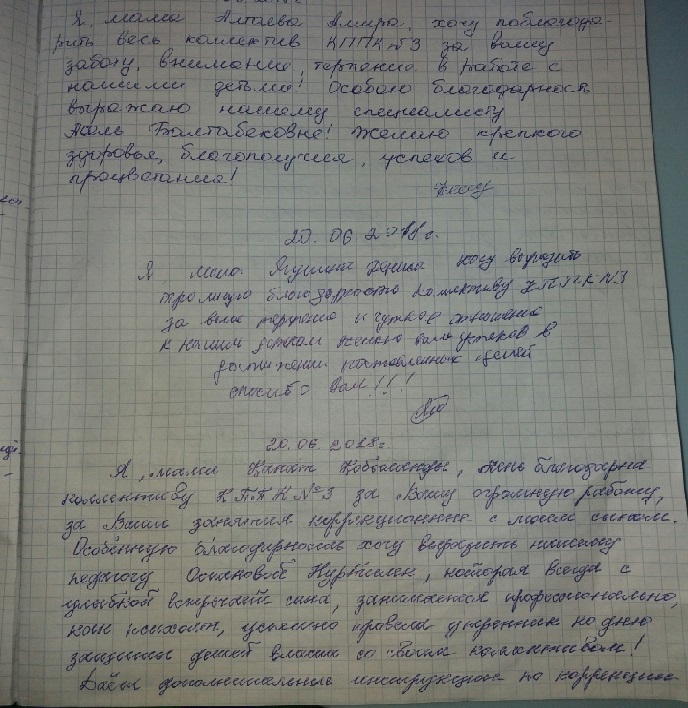 Я, мама Алтаева Амира, хочу поблагода-
рить весь коллектив КППК №3 за вашу
заботу, внимание, терпение в работе с
нашими детьми! Особую благодарность
выражаю нашему специалисту
Асель Балтабековне! Желаю крепкого
здоровья, благополучия, успехов и
процветания!
20. 06 2018 г.
Я мама хочу выразить
огромную благодарность коллективу КППК №3
за ваше терпение и чуткое отношение
к нашим деткам желаю вам успехов в
достижении поставленных целей
спасибо Вам!!!
20. 06. 2018 г
Я, мама Қанат Қобыланды, очень благодарна
коллективу КППК №3 за Вашу огромную работу,
за Ваши занятия коррекционные с моим сыном.
Особенную благодарность хочу выразить нашему
педагогу Оспановой, которая всегда с
улыбкой встречает сына, занимается профессионально,
как психолог, успешно провела утренник ко дню
защиты детей вместе со своим коллективом!
дополнительные инструкции по коррекции